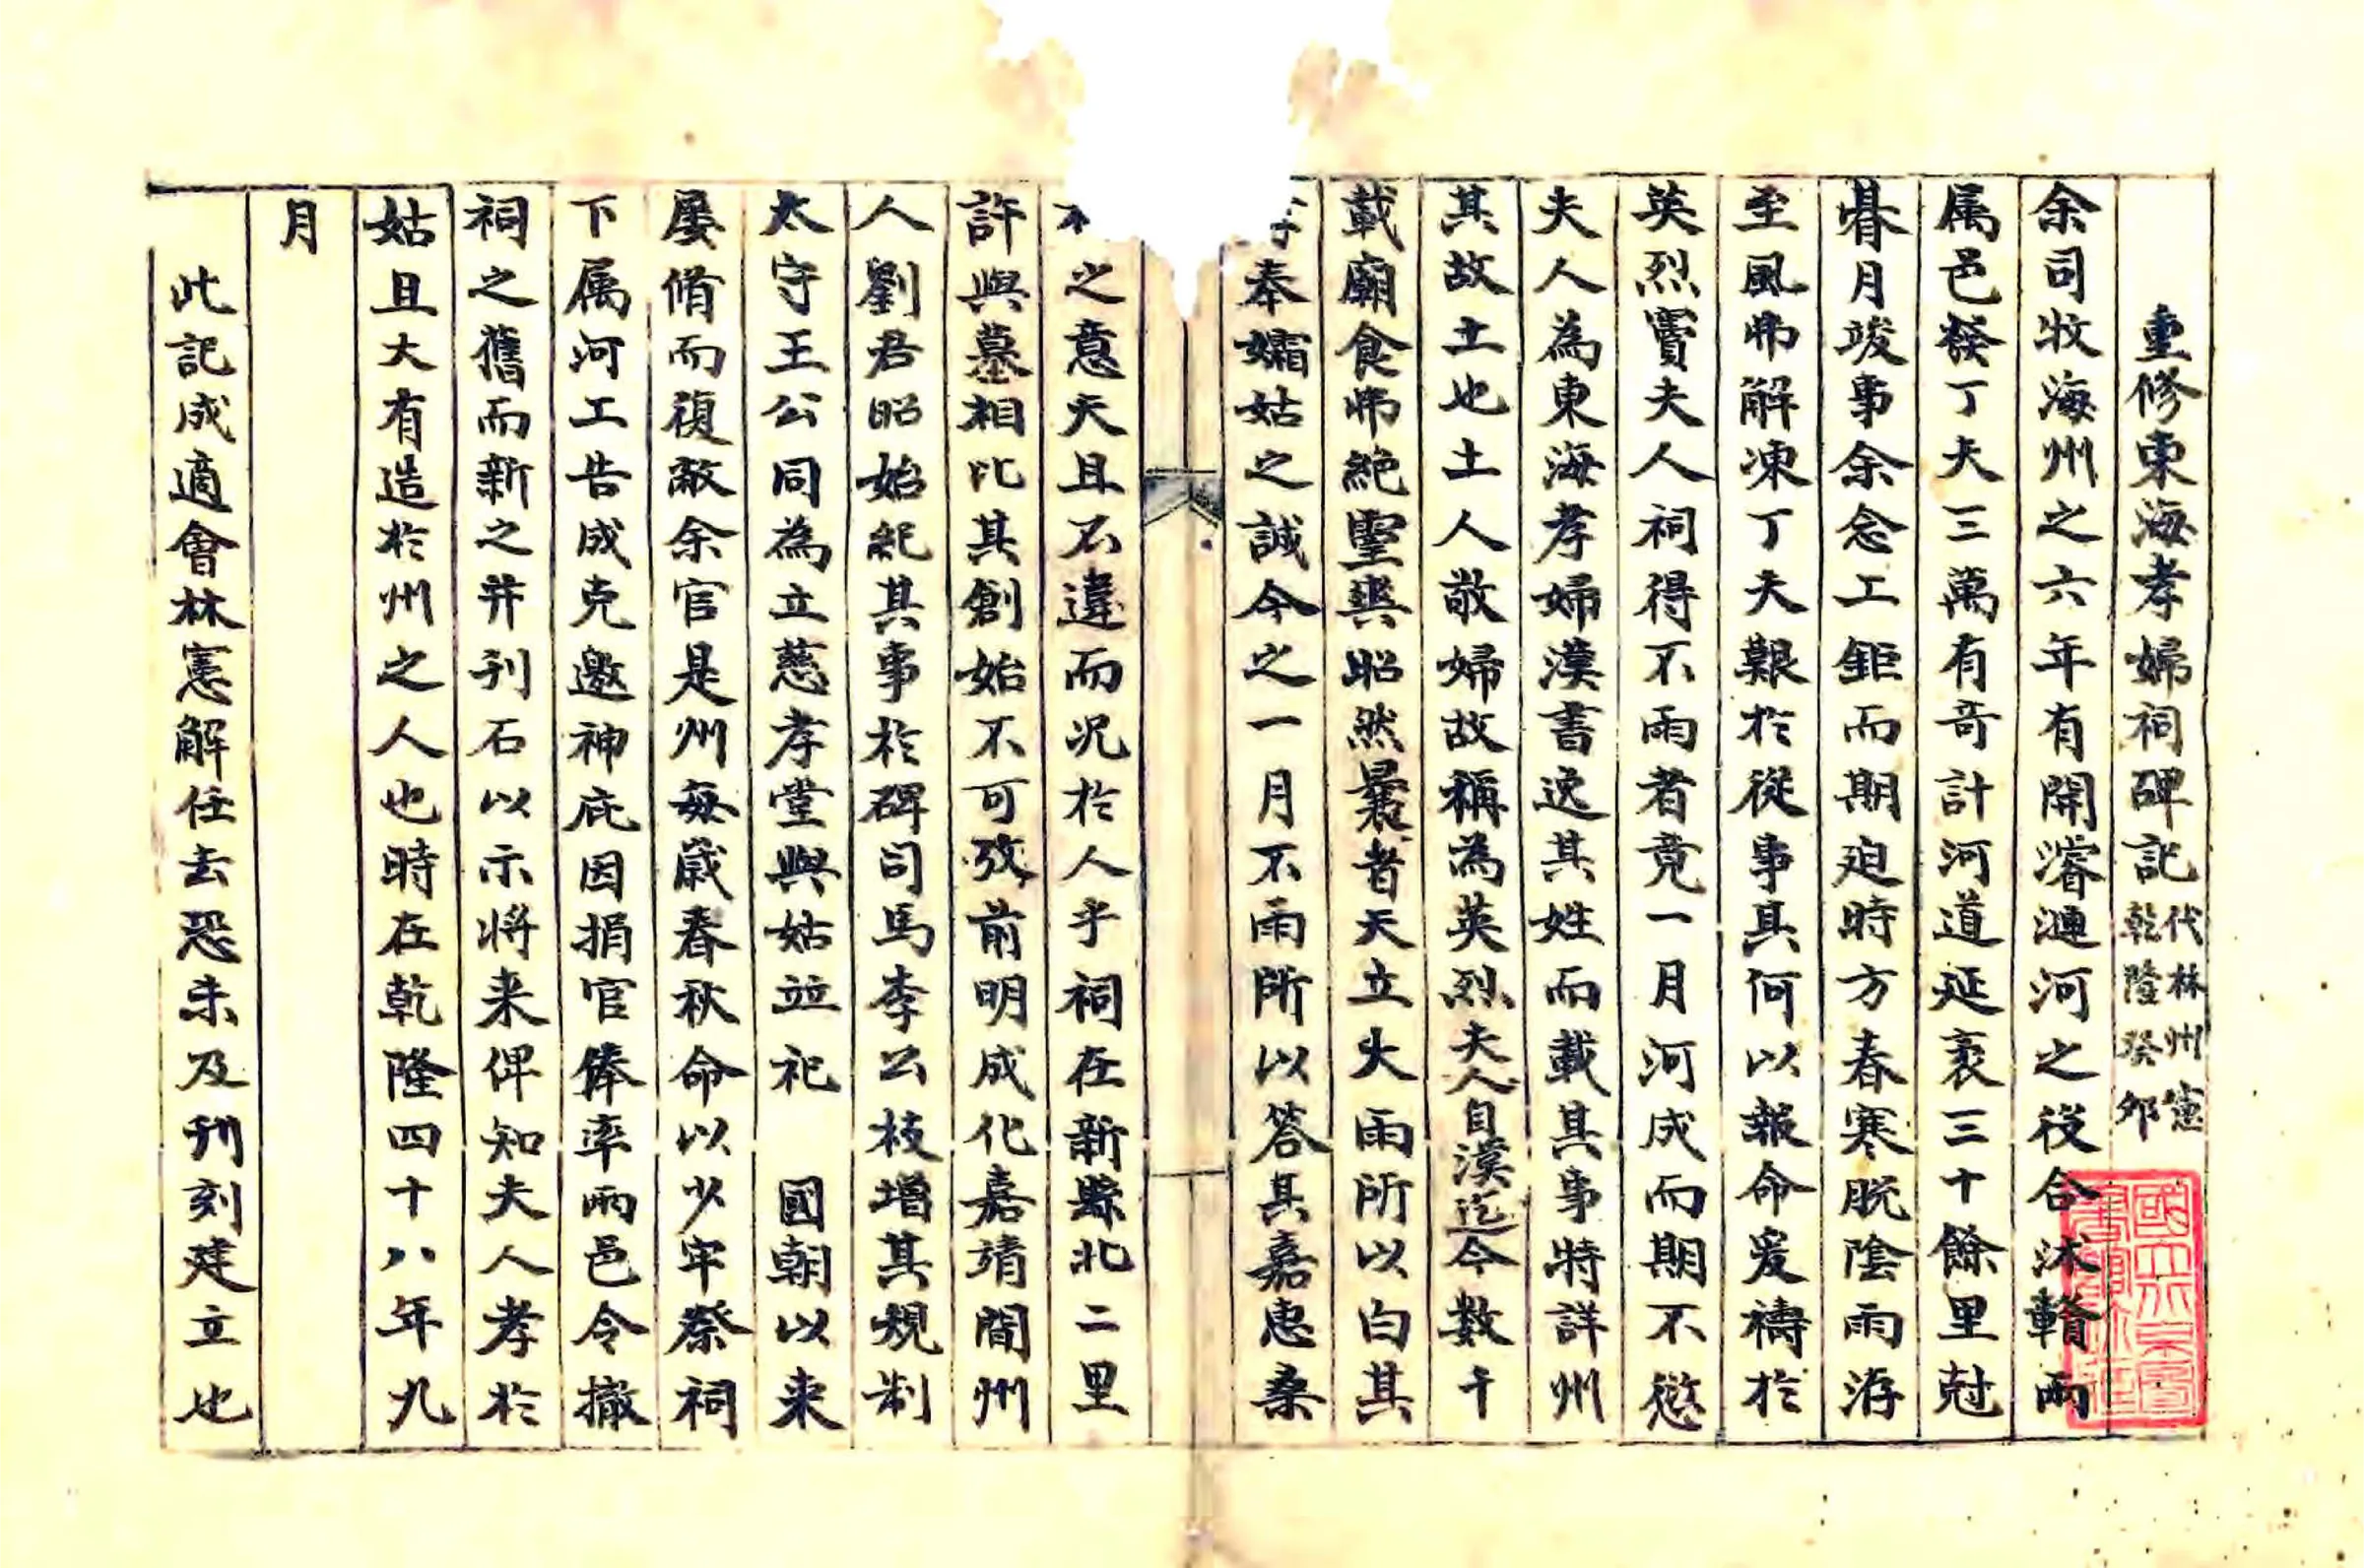 重修東海孝婦祠碑記 代林州憲 乾隆癸卯
余司牧海州之六年有開濬漣河之役合沭贛兩
属邑發丁夫三萬有奇計河道延袤三十餘里尅
朞月竣事余念工鉅而期廹時方春寒脱陰雨洊
至風弗解凍丁夫艱於從事其何以報命爰禱於
英烈竇夫人祠得不雨者竟一月河成而期不愆
夫人為東海孝婦漢書逸其姓而載其事特詳州
其故土也土人敬婦故稱為英烈夫人自漢迄今数千
載廟食弗絶靈爽昭然曩者天立大雨所以白其
奉孀姑之誠今之一月不雨所以答其嘉惠桑
之意天且不違而况於人乎祠在新縣北二里
許與墓相比其創始不可攷前明成化嘉靖間州
人劉君昭始紀其事於碑司馬李公枝增其規制
太守王公同為立慈孝堂與姑並祀 國朝以来
屡脩而復敝余官是州每歲春秋命以少牢祭祠
下属河工告成克邀神庇因捐官俸率兩邑令撤
祠之舊而新之并刊石以示将来俾知夫人孝於
姑且大有造於州之人也時在乾隆四十八年九
月
此記成適會林憲解任去恐未及刊刻建立也